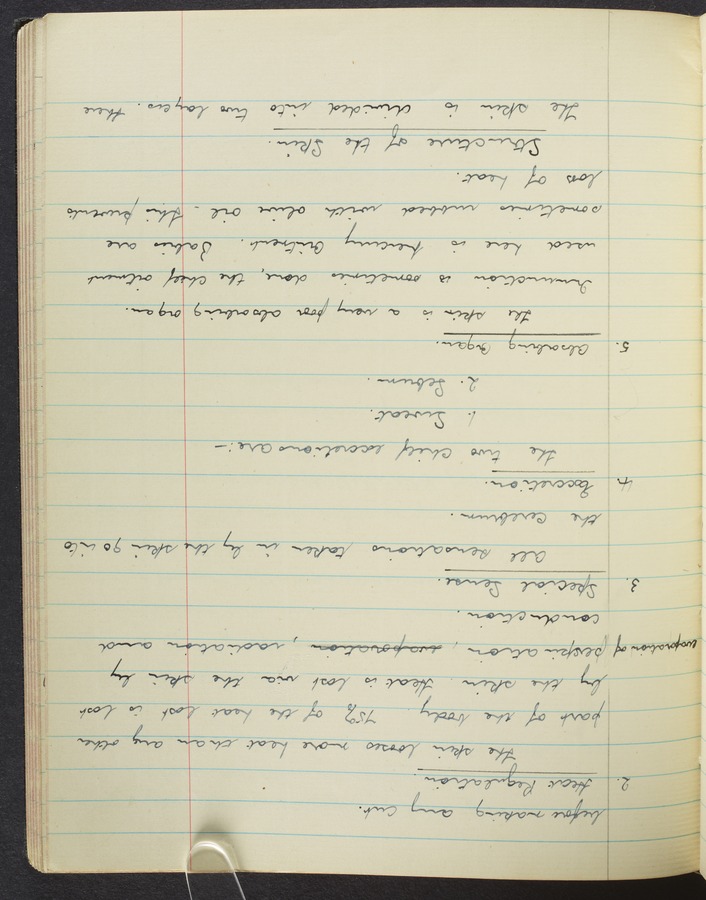 before making any cut.
2. Heat Regulation.
The skin looses more heat than any other
part of the body. 75% of the heat lost is lost
by the skin. Heat is lost via the skin by
evaporation of perspiration, evaporation, radiation and
conduction.
3. Special Sense.
All sensations taken in by the skin go into
the cerebrum.
4. Excretion.
The two chief excretions are:-
1. Sweat.
2. Sebum.
5. Absorbing Organ.
The skin is a very poor absorbing organ.
Inunction is sometimes done, the chief ointment
used here is Mercury Ointment. Babies are
sometimes rubbed with olive oil - this prevents
loss of heat.
Structure of the Skin.
The skin is divided into two layers. There